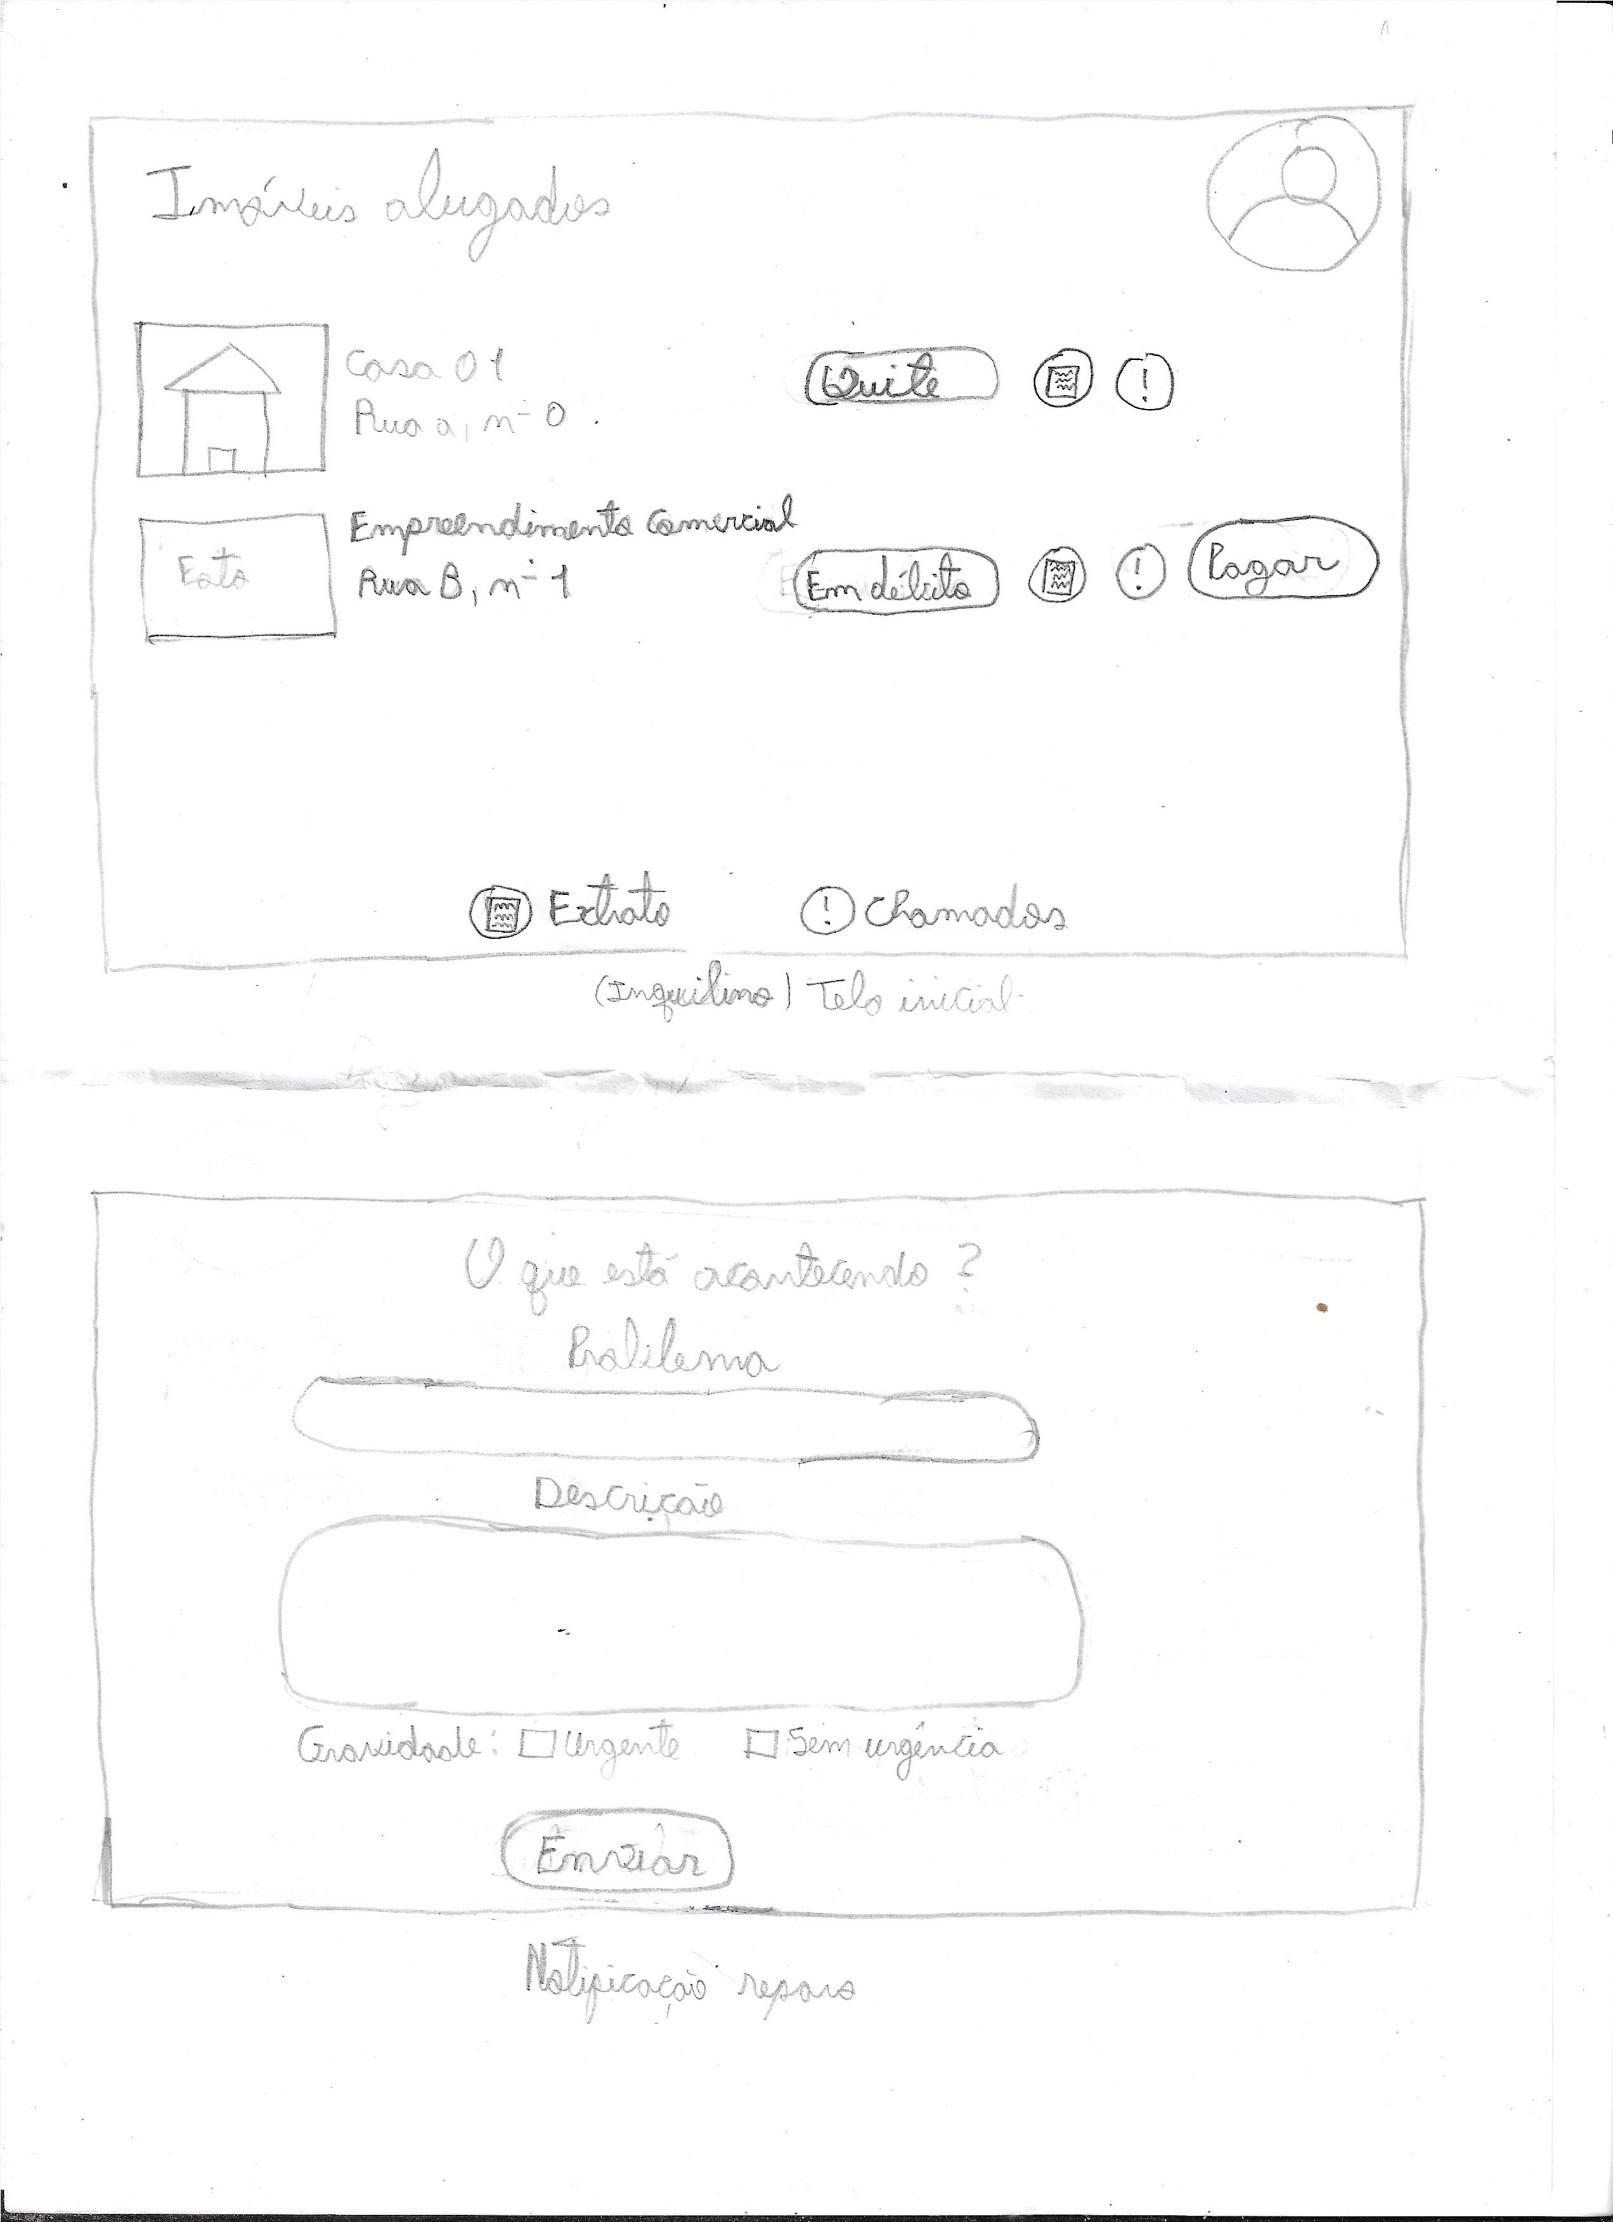 Imóveis alugados
Casa 01
Rua a, nº 0
Quite
!
Foto
Empreendimento Comercial
Rua B, nº 1
Em débito
!
Pagar
Extrato
! Chamados
(Inquilino) Tela inicial
O que está acontecendo ?
Problema
Descrição
Gravidade: Urgente Sem urgência
Enviar
Notificação reparo